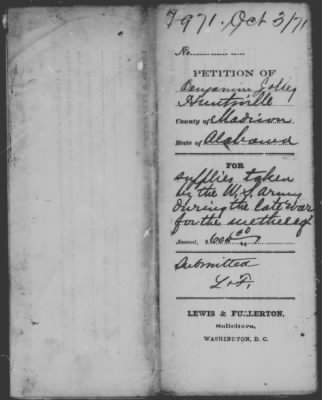 7971. Oct 3/71
No.
PETITION OF
Benjamin Jolley
Huntsville
County of Madison
State of Alabama
FOR
supplies taken
by the U.S. Army
during the late war
for the use thereof
Amount, $606 00
Submitted
L & F.
LEWIS & FULLERTON,
Solicitors,
WASHINGTON, D. C.